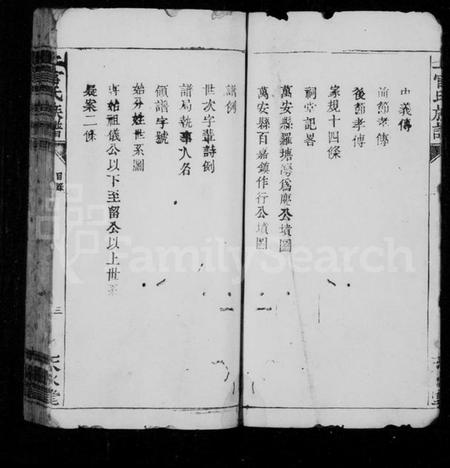 忠義傳
前節孝傳
後節孝傳
家規十四條
祠堂記畧
萬安縣羅塘灣為慶公墳圖
萬安縣百嘉鎮作行公墳圖
譜例
世次字輩詩例
譜局執事人名
領譜字號
始分姓世系圖
始祖儀公以下至留公以上世系
疑案二條
上官氏族譜
目錄
三
FamilySearch